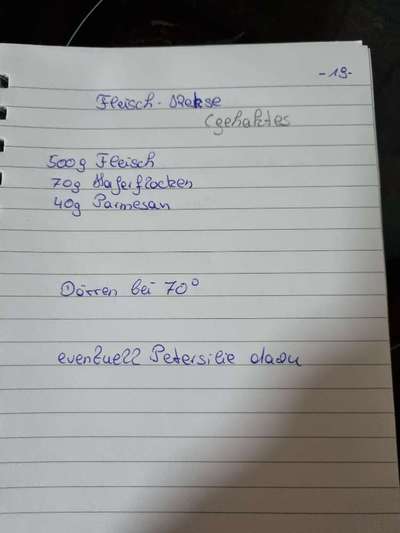 -19-
Fleisch-Kekse
(gehaktes
500g Fleisch
70g Haferflocken
40g Parmesan
Dörren bei 70°
eventuell Petersilie dazu